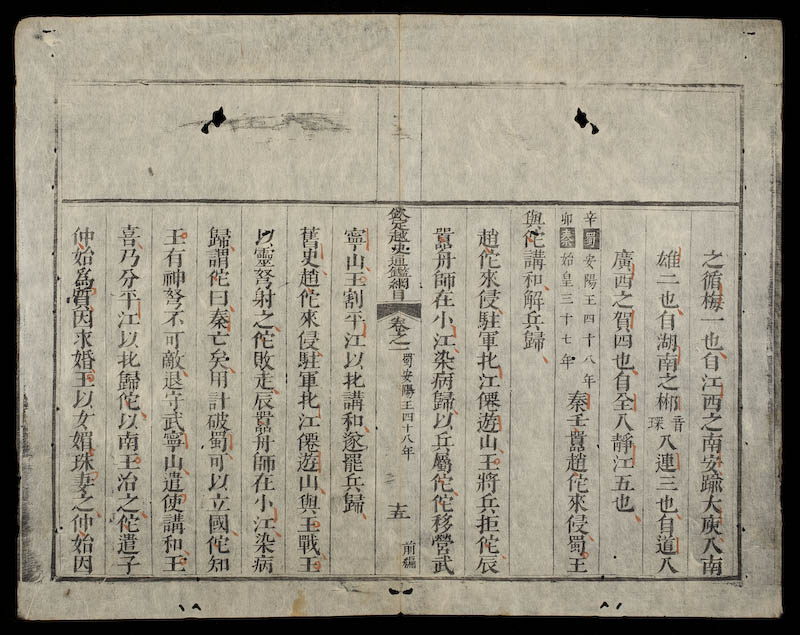 之循梅一也自江西之南安踰大庾入南
雄二也自湖南之郴音琛入連三也自道入
廣西之賀四也自全入靜江五也
辛卯蜀安陽王四十八年秦始皇三十七年秦壬囂趙佗來侵蜀王
與佗講和解兵歸
趙佗來侵駐軍北江僊遊山王將兵拒佗辰
囂舟師在小江染病歸以兵屬佗佗移營武
欽定越史通鑑綱目 卷之一 蜀安陽王四十八年 十五 前編
寧山王割平江以北講和遂罷兵歸
舊史趙佗來侵駐軍北江僊遊山與王戰王
以靈弩射之佗敗走辰囂舟師在小江染病
歸謂佗曰秦亡矣用計破蜀可以立國佗知
王有神弩不可敵退守武寧山遣使講和王
喜乃分平江以北歸佗以南王治之佗遣子
仲始爲質因求婚王以女媚珠妻之仲始因